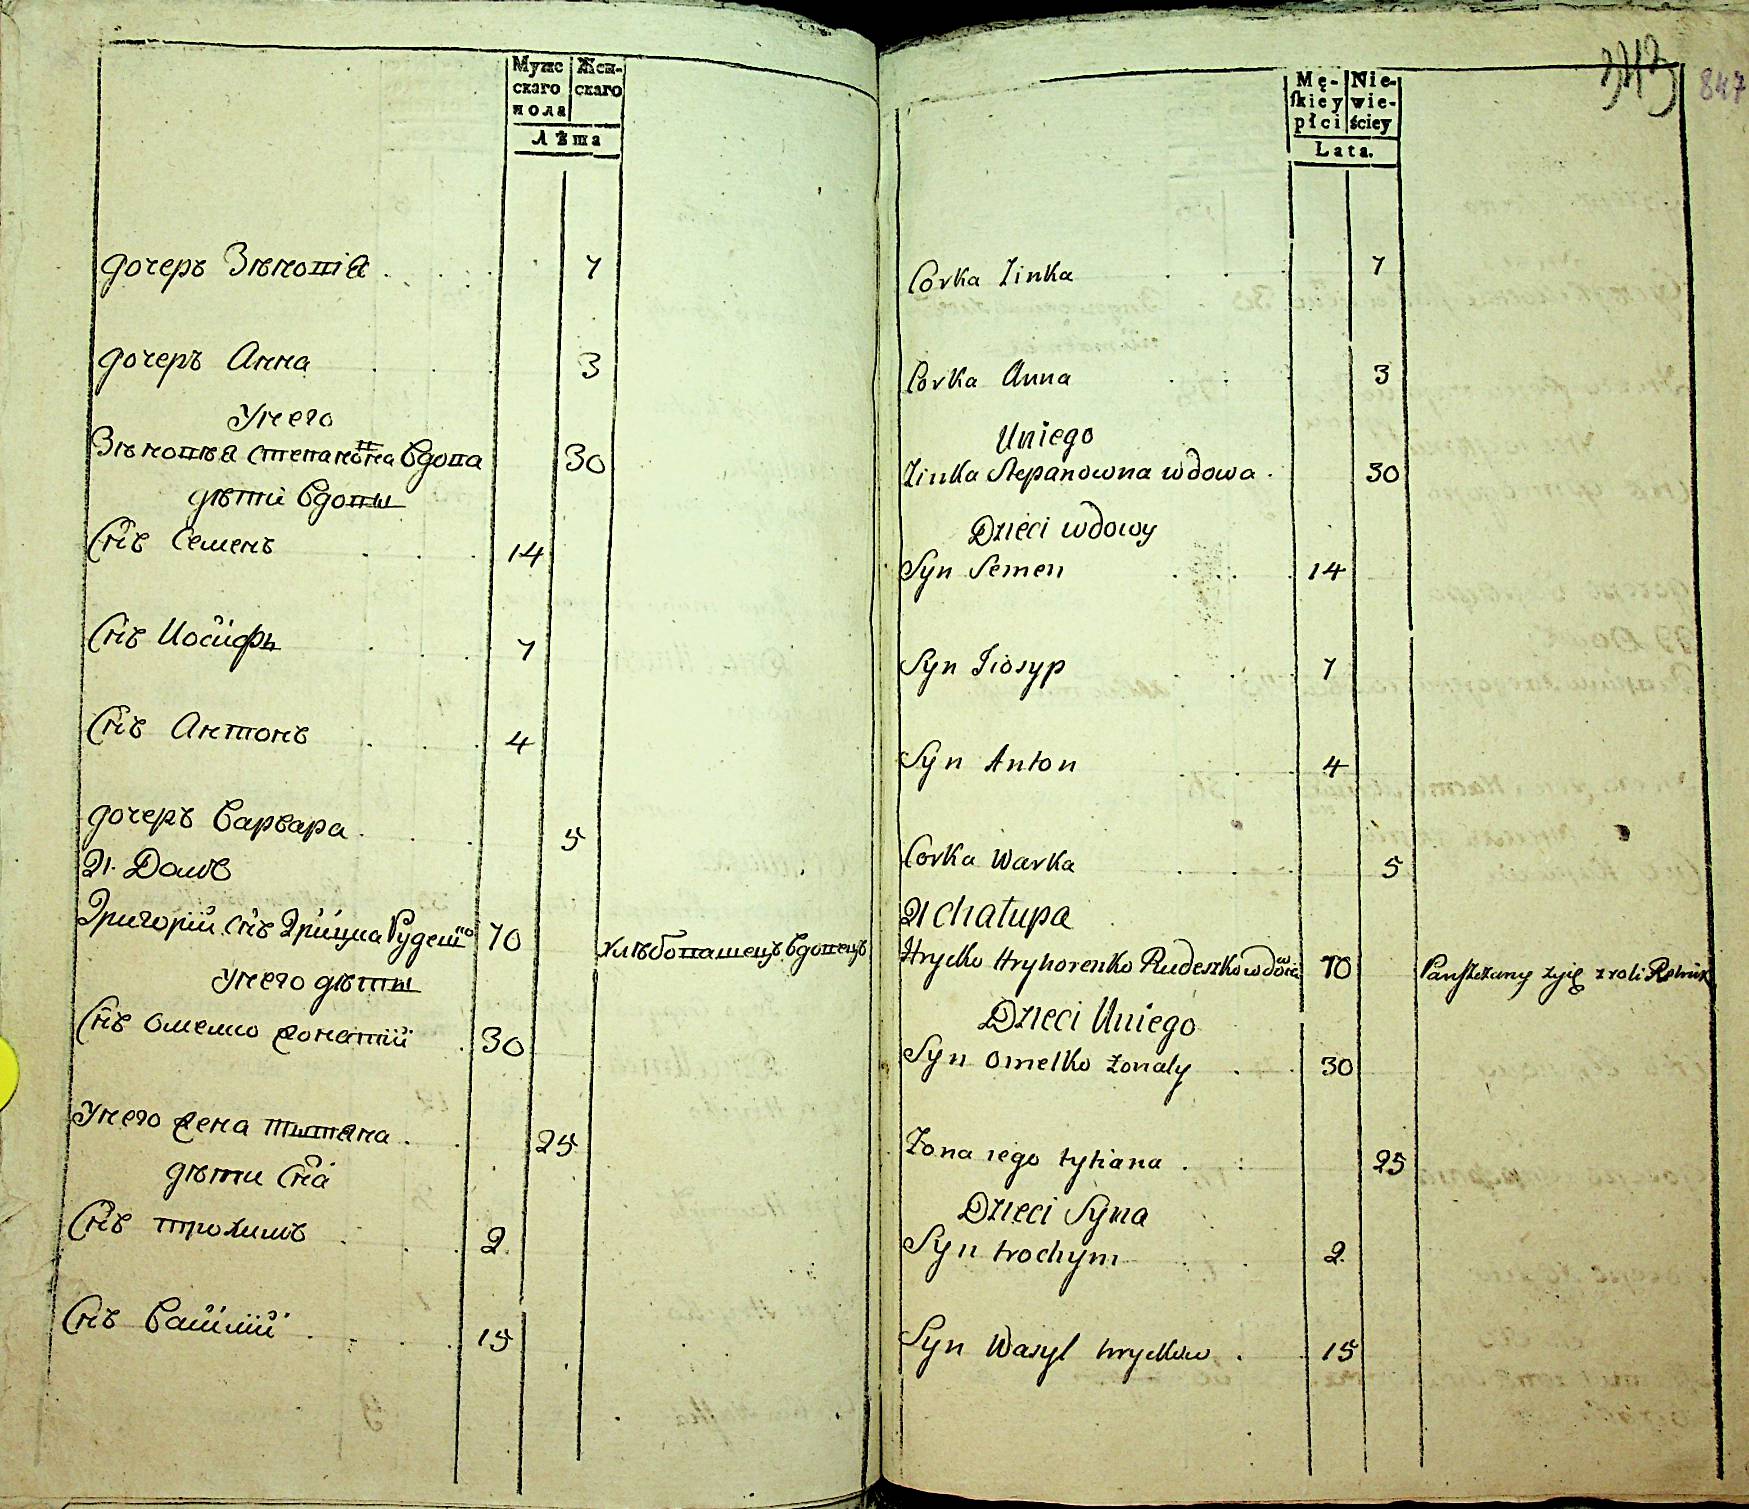 Мужс
скаго
пола
Жен-
скаго
Лѣта
дочеръ Зѣновія 7
дочеръ Анна 3
Унего
Зѣновѣя степановна вдова 30
дѣти вдовы
Снъ Семенъ 14
Снъ Иосифъ 7
Снъ Антонъ 4
дочеръ Варвара 5
21. Домъ
Григорій снъ Грицка Рудешко 70 хлѣбопашецъ вдовецъ
Унего дѣты
Снъ Омелко жонатій 30
Унего жена тытяна 25
дѣти Сна
Снъ трохимъ 2
Снъ Василій 15
343
847
Mę-
ſkiey
płci
Nie-
wie-
ściey
Lata.
Corka Zinka 7
Corka Anna 3
Uniego
Zinka Stepanowna wdowa 30
Dzieci wdowy
Syn Semen 14
Syn Jiosyp 7
Syn Anton 4
Corka Warka 5
21 chałupa
Hrycko Hryhorenko Rudeszko wdowiec 70 Panſzczany żyię z roli Rolnik
Dzieci Uniego
Syn Omelko żonaty 30
Żona iego tytiana 25
Dzieci Syna
Syn trochym 2
Syn Wasyl hryckow 15